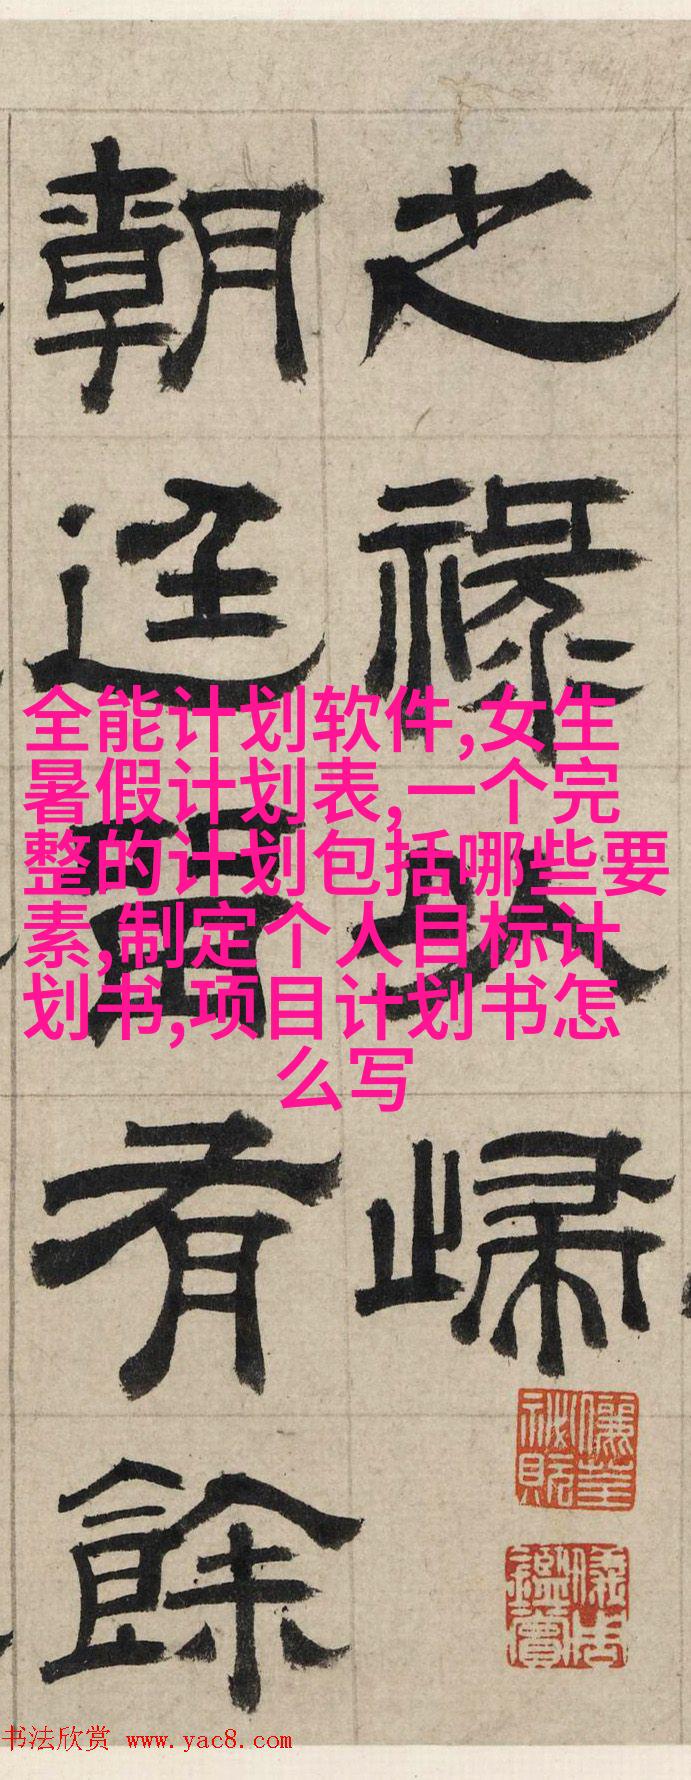 之祿以歸
朝廷留有餘
全能计划软件,女生
暑假计划表,一个完
整的计划包括哪些要
素,制定个人目标计
划书,项目计划书怎
么写
书法欣赏 www.yac8.com